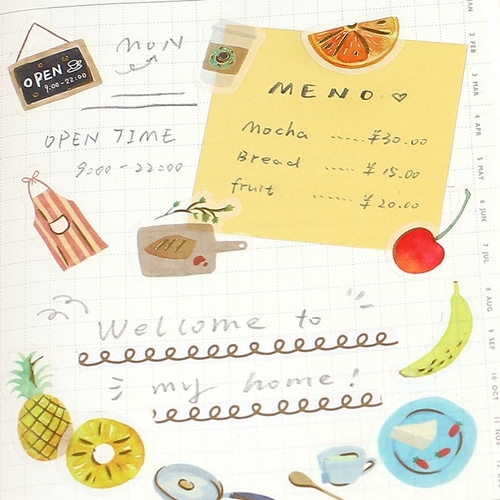 MON
OPEN
9:00-22:00
OPEN TIME
9:00-22:00
MENO ♡
Mocha ..... ¥30.00
Bread ..... ¥ 15.00
fruit ...... ¥ 20.00
Welcome to
my home!
2 FEB
3 MAR
4 APR
5 MAY
6 JUN
7 JUL
8 AUG
9 SEP
10 OCT
11 NOV